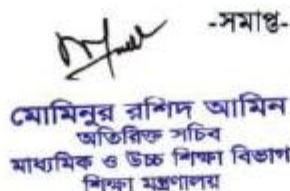 -সমাপ্ত-
মোমিনুর রশিদ আমিন
অতিরিক্ত সচিব
মাধ্যমিক ও উচ্চ শিক্ষা বিভাগ
শিক্ষা মন্ত্রণালয়